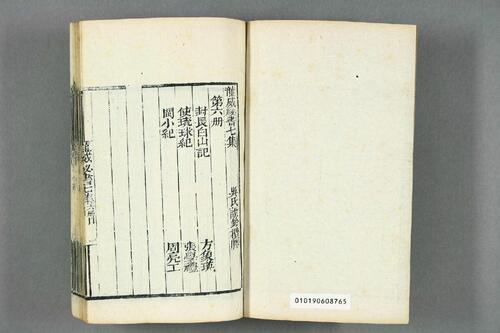 龍威秘書七集 吳氏說鈴攬勝
第六册
封長白山記 方象瑛
使琉球紀 張學禮
閩小紀 周亮工
龍威秘書七集
010190608765